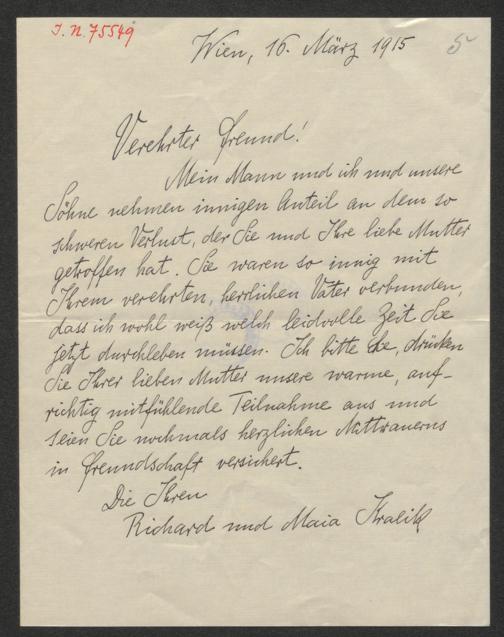 J. N. 75549
Wien, 16. März 1915
5
Verehrter Freund!
Mein Mann und ich und unsere
Söhne nehmen innigen Anteil an dem so
schweren Verlust, der Sie und Ihre liebe Mutter
getroffen hat. Sie waren so innig mit
Ihrem verehrten, herrlichen Vater verbunden,
dass ich wohl weiß welch leidvolle Zeit Sie
jetzt durchleben müssen. Ich bitte Sie, drücken
Sie Ihrer lieben Mutter unsere warme, auf-
richtig mitfühlende Teilnahme aus und
seien Sie nochmals herzlichen Mittrauerns
in Freundschaft versichert.
Die Ihren
Richard und Maia Kralik